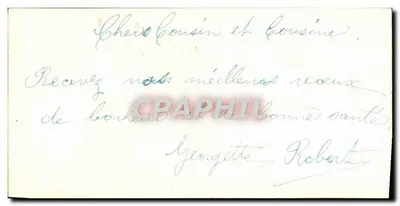 Chers Cousin et Cousine.
Recevez nos meilleurs voeux
de bonheur et de bonne santé
Georgette Robert
CPAPHIL